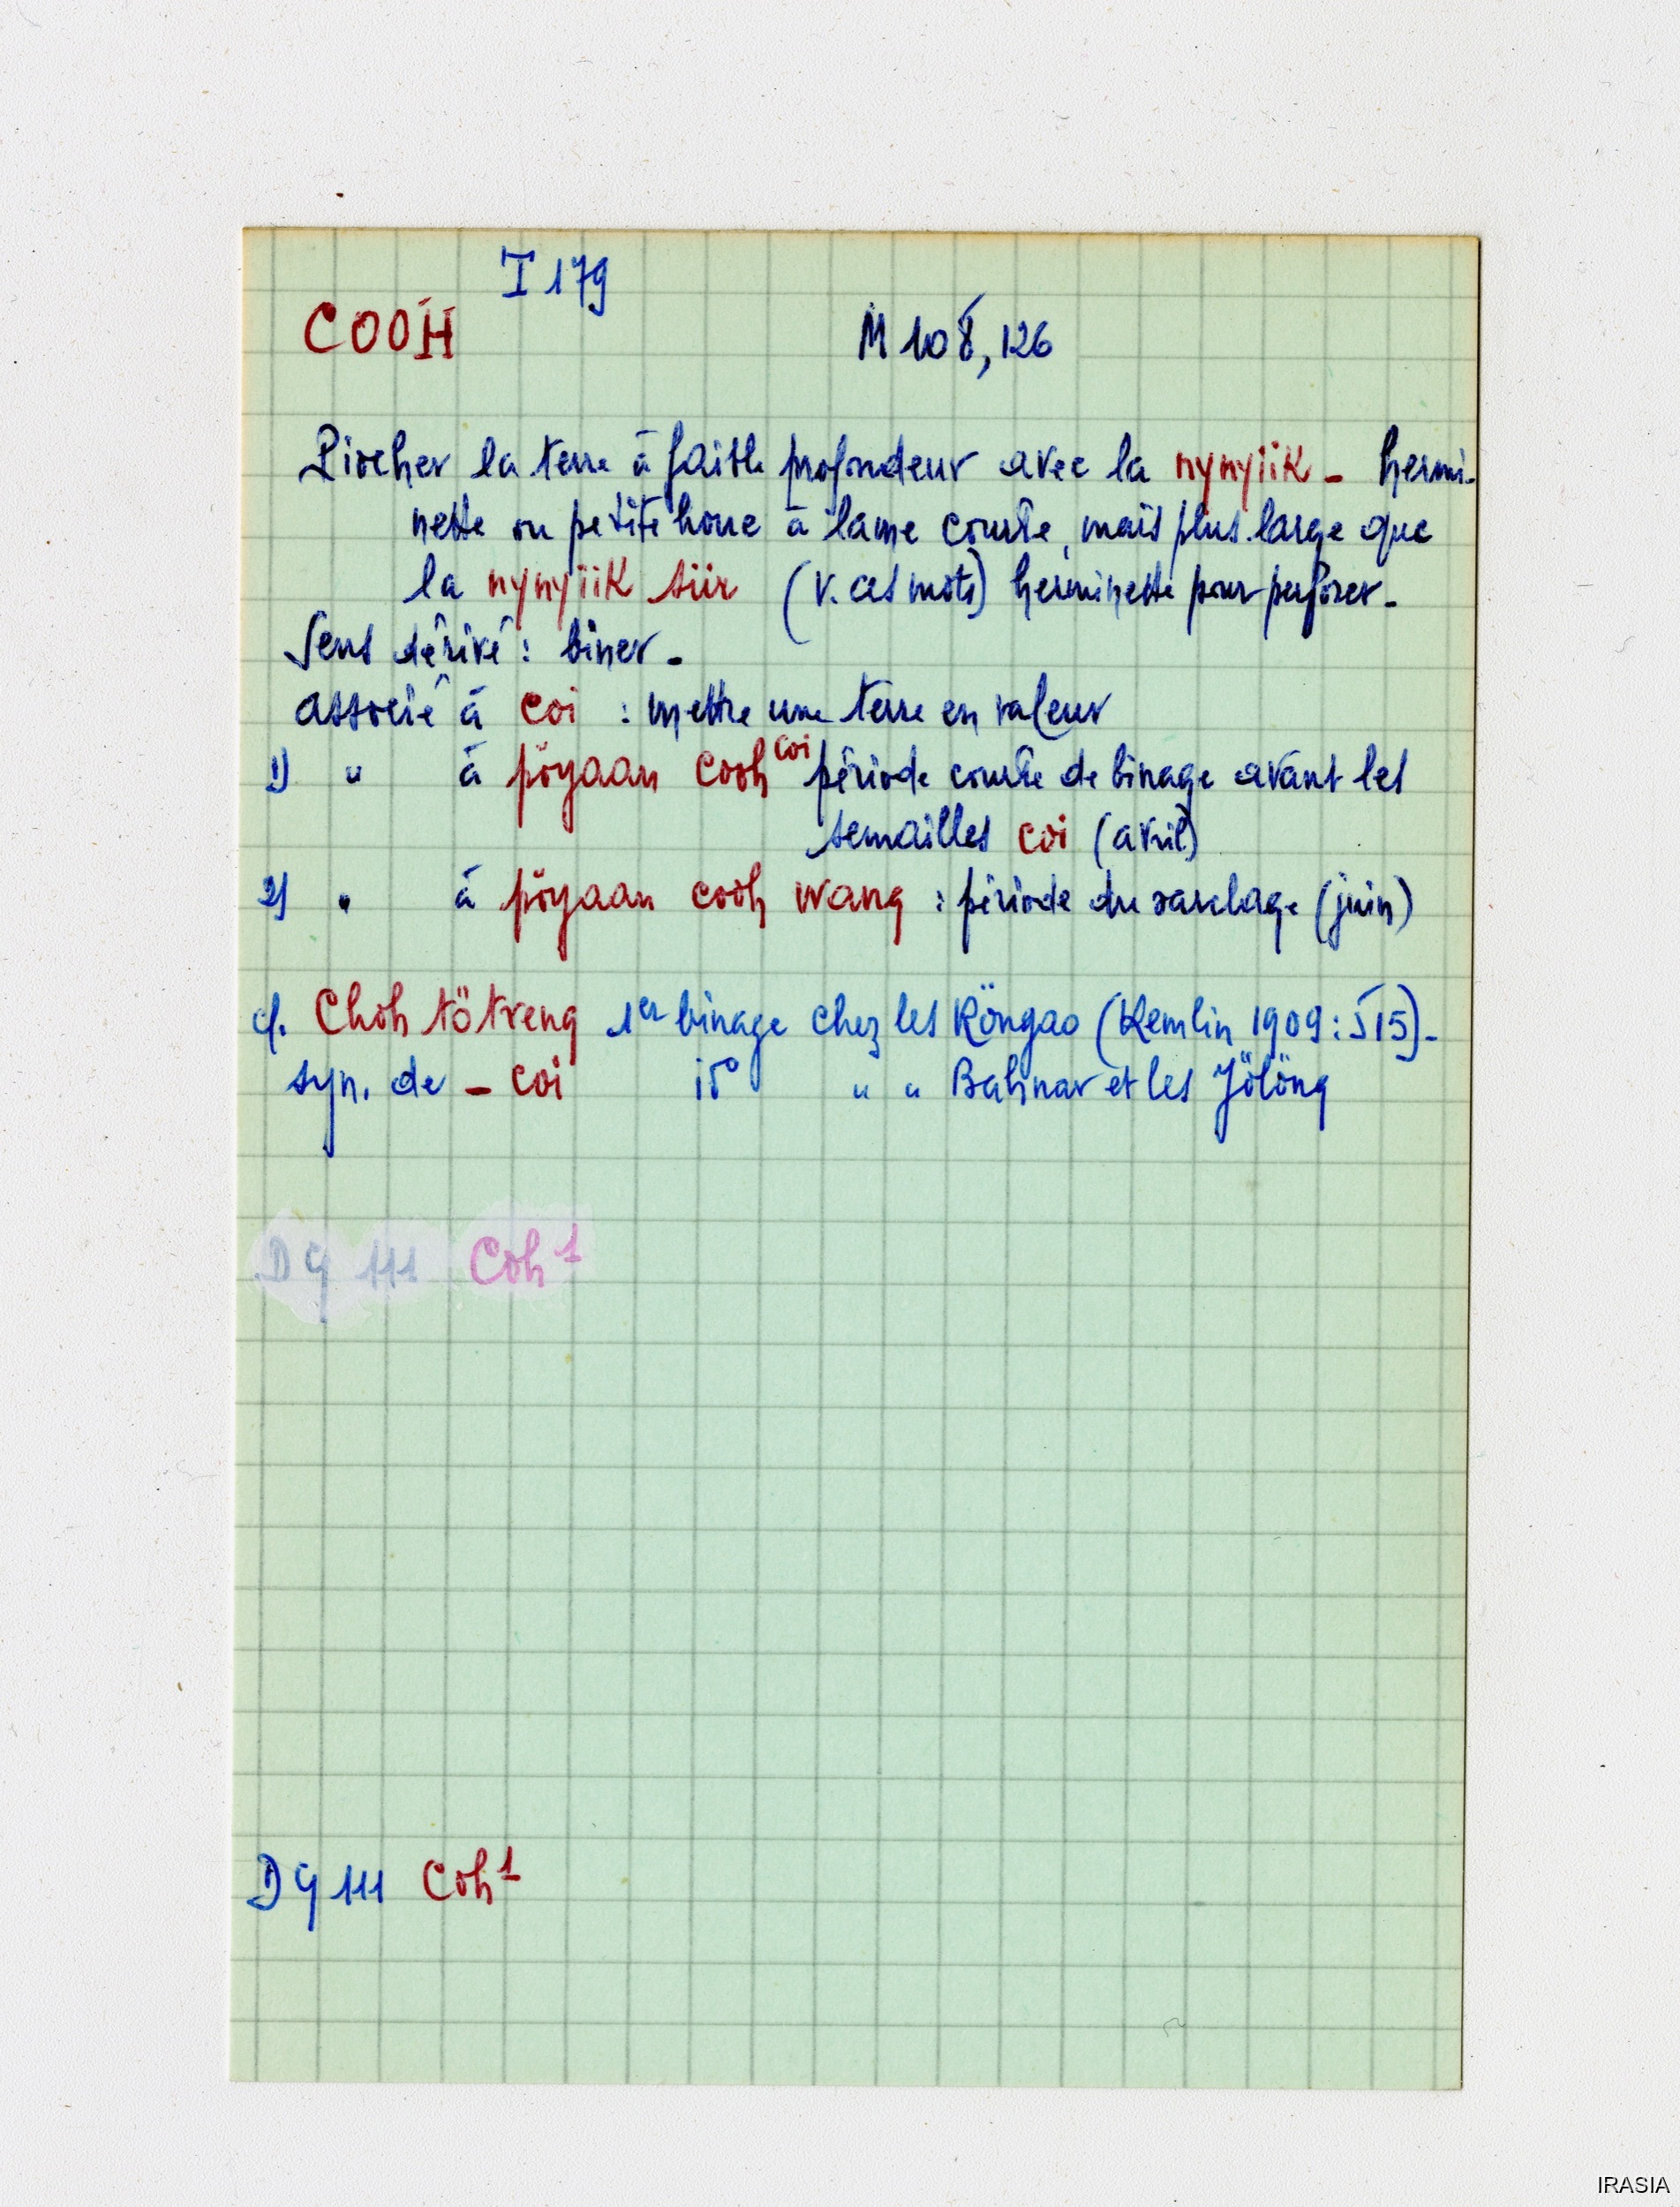 I 179
COOH M 108, 126
Piocher la terre à faible profondeur avec la nynyiik - hermi-
nette ou petite houe à lame courte, mais plus large que
la nynyiik siir (v. ces mots) herminette pour perforer -
Sens dérivé : biner -
associé à coi : mettre une terre en valeur
1) " à pöyaan cooh coi période courte de binage avant les
semailles coi (avril)
2) " à pöyaan cooh wang : période du sarclage (juin)
cf. Choh tötreng 1er binage chez les Röngao (Kemlin 1909 : 515) -
syn. de - coi id " " Bahnar et les Jölöng
DG 111 Coh 1
DG 111 Coh 1
IRASIA